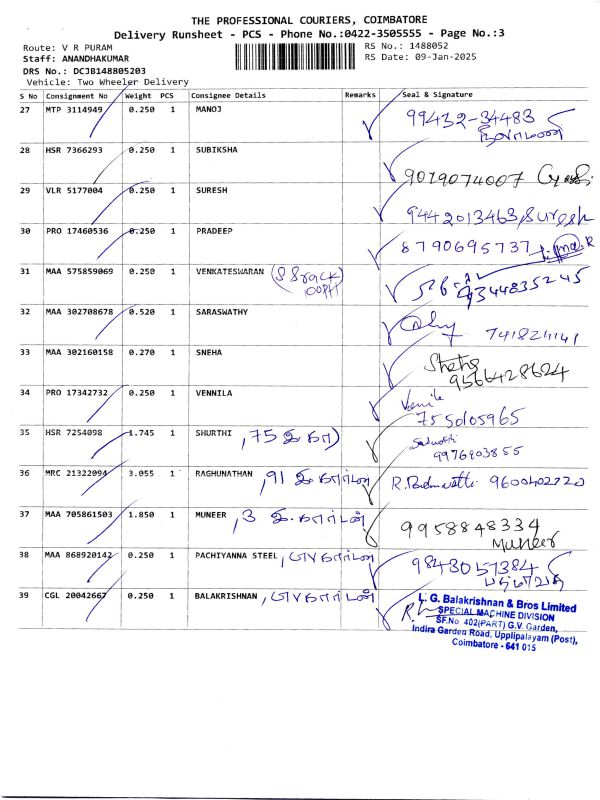 THE PROFESSIONAL COURIERS, COIMBATORE
Delivery Runsheet - PCS - Phone No.:0422-3505555 - Page No.:3
Route: V R PURAM
RS No.: 1488052
Staff: ANANDHAKUMAR
RS Date: 09-Jan-2025
DRS No.: DCJB148805203
Vehicle: Two Wheeler Delivery
S No Consignment No Weight PCS Consignee Details Remarks Seal & Signature
27 MTP 3114949 0.250 1 MANOJ 99432-34483
28 HSR 7366293 0.250 1 SUBIKSHA 9079074007
29 VLR 5177004 0.250 1 SURESH 9442013463, Suresh
30 PRO 17460536 0.250 1 PRADEEP 8790695737
31 MAA 575859069 0.250 1 VENKATESWARAN 9344835245
32 MAA 302708678 0.520 1 SARASWATHY
33 MAA 302160158 0.270 1 SNEHA
9566428624
34 PRO 17342732 0.250 1 VENNILA
7550105965
35 HSR 7254098 1.745 1 SHURTHI , 75
9976903855
36 MRC 21322094 3.055 1 RAGHUNATHAN , 91 இ. கார்டன் 9600402720
37 MAA 705861503 1.850 1 MUNEER , 3 இ. கார்டன் 9958848334
Muneer
38 MAA 868920142 0.250 1 PACHIYANNA STEEL 9843051384
39 CGL 20042667 0.250 1 BALAKRISHNAN
L. G. Balakrishnan & Bros Limited
SPECIAL MACHINE DIVISION
SF.No 402(PART) G.V. Garden,
Indira Garden Road, Upplipalayam (Post),
Coimbatore - 641 015